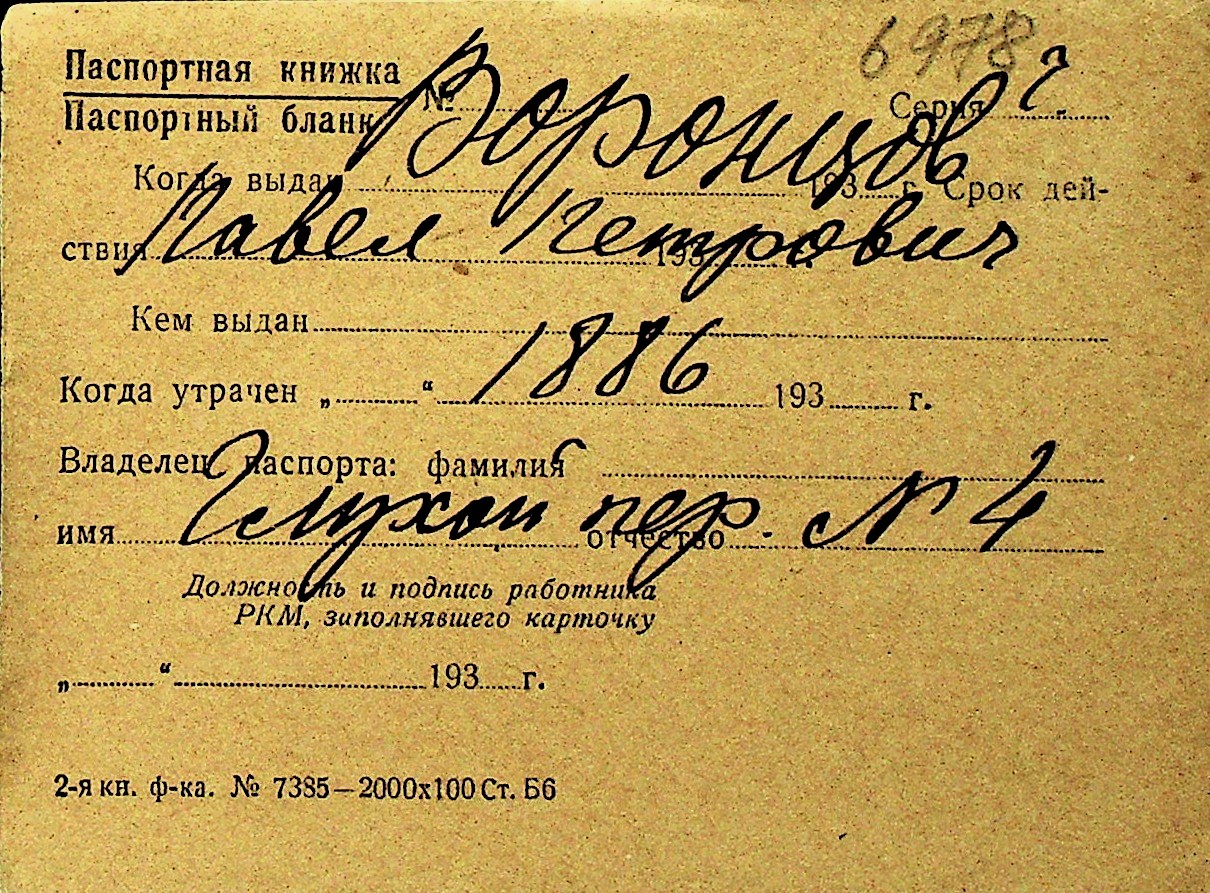 6978
Паспортная книжка
Паспортный бланк № Серия „ “
Воронцов
Когда выдан 193 г. Срок дей-
ствия 193 г.
Павел Петрович
Кем выдан
1886
Когда утрачен „ “ 193 г.
Владелец паспорта: фамилия
Глухой пер. № 4
имя отчество
Должность и подпись работника
РКМ, заполнявшего карточку
„ “ 193 г.
2-я кн. ф-ка. № 7385—2000х100 Ст. Б6